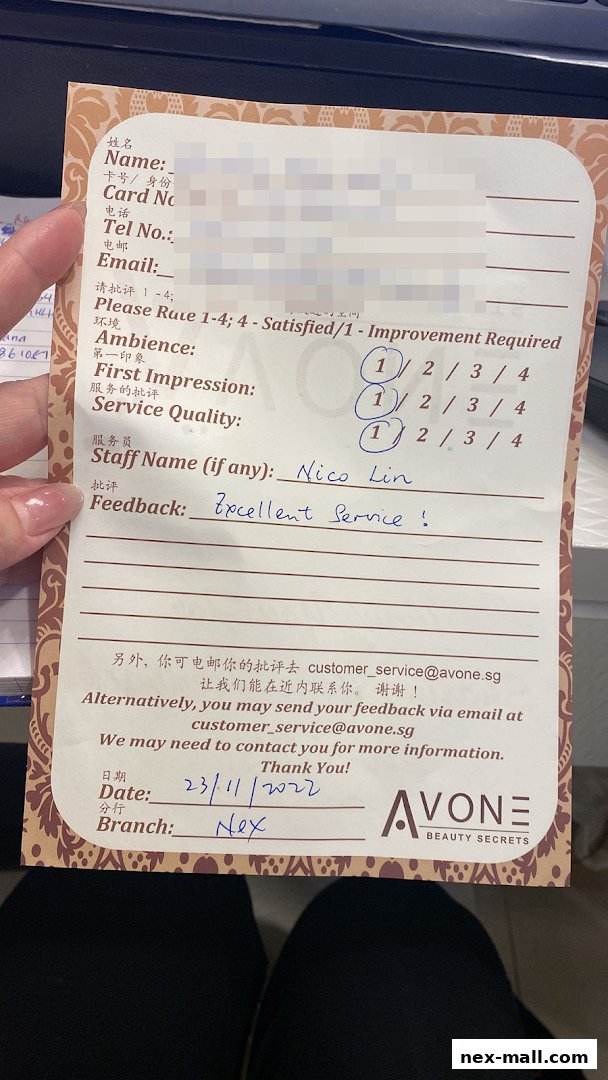 姓名
Name:
卡号/ 身份
Card No
电话
Tel No.:
电邮
Email:
请批评 1-4;
Please Rate 1-4; 4 - Satisfied/1 - Improvement Required
环境
Ambience: 1 / 2 / 3 / 4
第一印象
First Impression: 1 / 2 / 3 / 4
服务的批评
Service Quality: 1 / 2 / 3 / 4
服务员
Staff Name (if any): Nico Lin
批评
Feedback: Excellent Service !
另外, 你可电邮你的批评去 customer_service@avone.sg
让我们能在近内联系你。 谢谢!
Alternatively, you may send your feedback via email at
customer_service@avone.sg
We may need to contact you for more information.
Thank You!
日期
Date: 23/11/2022
分行
Branch: Nex
AVONE
BEAUTY SECRETS
nex-mall.com